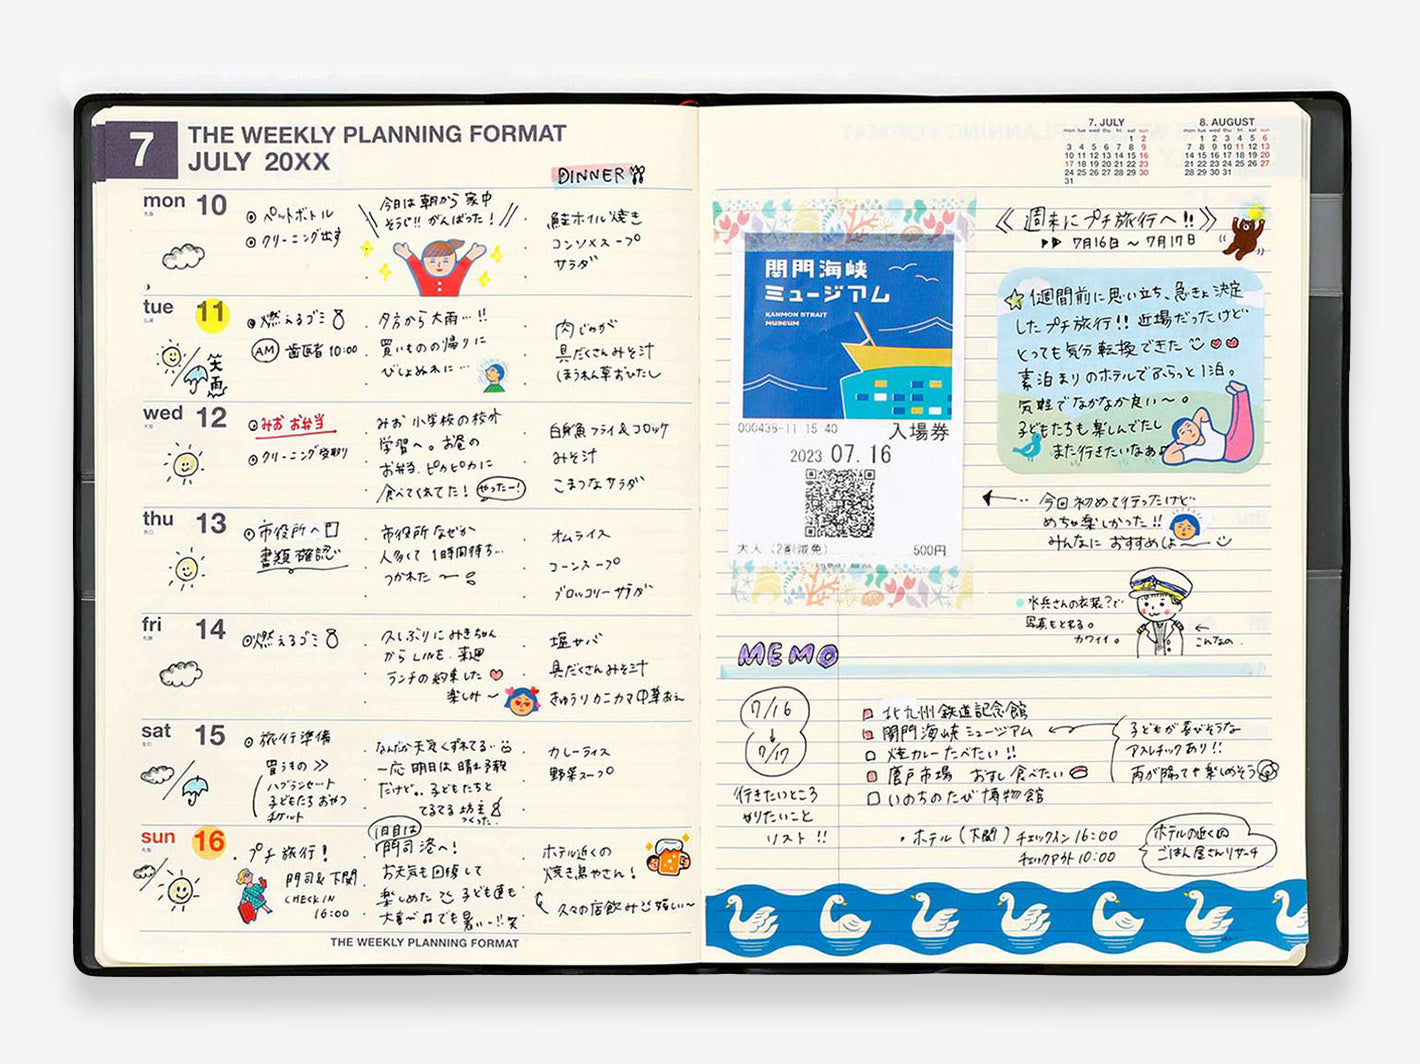 7
THE WEEKLY PLANNING FORMAT
JULY 20XX
DINNER
mon 10
ペットボトル
クリーニング出す
今日は朝から家中
そうじ!! がんばった!
鮭ホイル焼き
コンソメスープ
サラダ
tue 11
燃えるゴミ
AM 歯医者 10:00
笑
雨
夕方から大雨…!!
買いものの帰りに
びしょぬれに…
肉じゃが
具だくさんみそ汁
ほうれん草おひたし
wed 12
みお お弁当
クリーニング受取り
みお 小学校の校外
学習へ。お昼の
お弁当、ピカピカに
食べてくれてた! やったー!
白身魚フライ&コロッケ
みそ汁
こまつなサラダ
thu 13
市役所へ
書類確認
市役所なぜか
人多くて 1時間待ち…
つかれた〜
オムライス
コーンスープ
ブロッコリーサラダ
fri 14
燃えるゴミ
久しぶりに みきちゃん
からLINE. 来週
ランチの約束した
楽しみ〜
塩サバ
具だくさんみそ汁
きゅうりカニカマ中華あえ
sat 15
旅行準備
買うもの >>
ハブラシセット
子どもたち おやつ
チケット
なんだか天気くずれてる…
一応 明日は晴れ予報
だけど。。子どもたちと
てるてる坊主
つくった.
カレーライス
野菜スープ
sun 16
プチ旅行!
門司&下関
CHECK IN
16:00
1日目は
門司港へ!
お天気も回復して
楽しめた 子ども達も
大喜び でも暑い…!!笑
ホテル近くの
焼き鳥やさん!
久々の店飲み 嬉しい〜
THE WEEKLY PLANNING FORMAT
7. JULY
mon tue wed thu fri sat sun
1 2
3 4 5 6 7 8 9
10 11 12 13 14 15 16
17 18 19 20 21 22 23
24 25 26 27 28 29 30
31
8. AUGUST
mon tue wed thu fri sat sun
1 2 3 4 5 6
7 8 9 10 11 12 13
14 15 16 17 18 19 20
21 22 23 24 25 26 27
28 29 30 31
関門海峡
ミュージアム
KANMON STRAIT
MUSEUM
000438-11 15:40
入場券
2023 07.16
大人(2割減免) 500円
《週末にプチ旅行へ!!》
7月16日〜7月17日
1週間前に思い立ち、急きょ決定
したプチ旅行!! 近場だったけど
とっても気分転換できた
素泊まりのホテルでふらっと1泊。
気軽でなかなか良い〜。
子どもたちも楽しんでたし
また行きたいなぁ
今回初めて行ったけど
めちゃ楽しかった!!
みんなに おすすめしよ〜
水兵さんの衣装?で
写真もとれる。
カワイイ。
こんなの.
MEMO
7/16
↓
7/17
行きたいところ
やりたいこと
リスト!!
北九州鉄道記念館
関門海峡ミュージアム
焼カレーたべたい!!
唐戸市場 おすし食べたい
いのちのたび博物館
子どもが喜びそうな
アスレチックあり!!
雨が降っても楽しめそう
・ホテル(下関) チェックイン 16:00
チェックアウト 10:00
ホテルの近くの
ごはん屋さんリサーチ